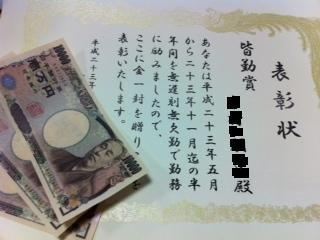 表彰状
皆勤賞
殿
あなたは平成二十三年五月
から二十三年十一月迄の半
年間を無遅刻無欠勤で勤務
に励みましたので、
ここに金一封を贈り
表彰いたします。
平成二十三年
10000
壱万円
10000